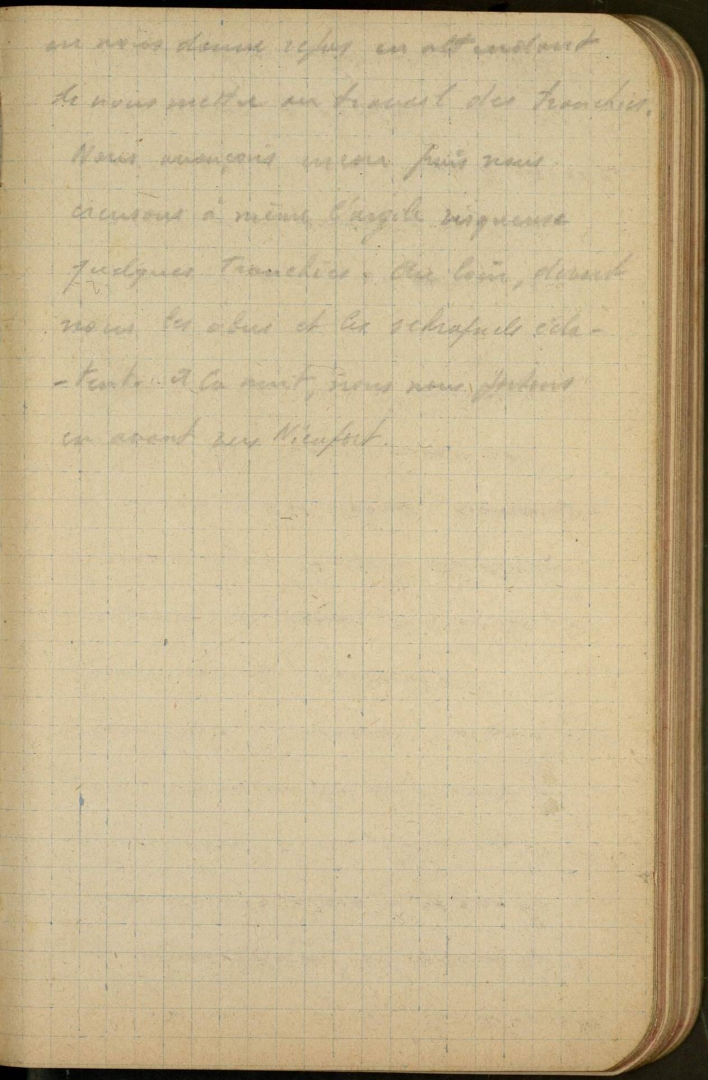 on nous donne repos en attendant
de nous mettre au travail des tranchées.
Nous avançons encore puis nous
creusons à même l'argile visqueuse
quelques tranchées. Au loin, devant
nous les obus et les schrapnels écla-
-tent. A la nuit, nous nous portons
en avant vers Nieuport.